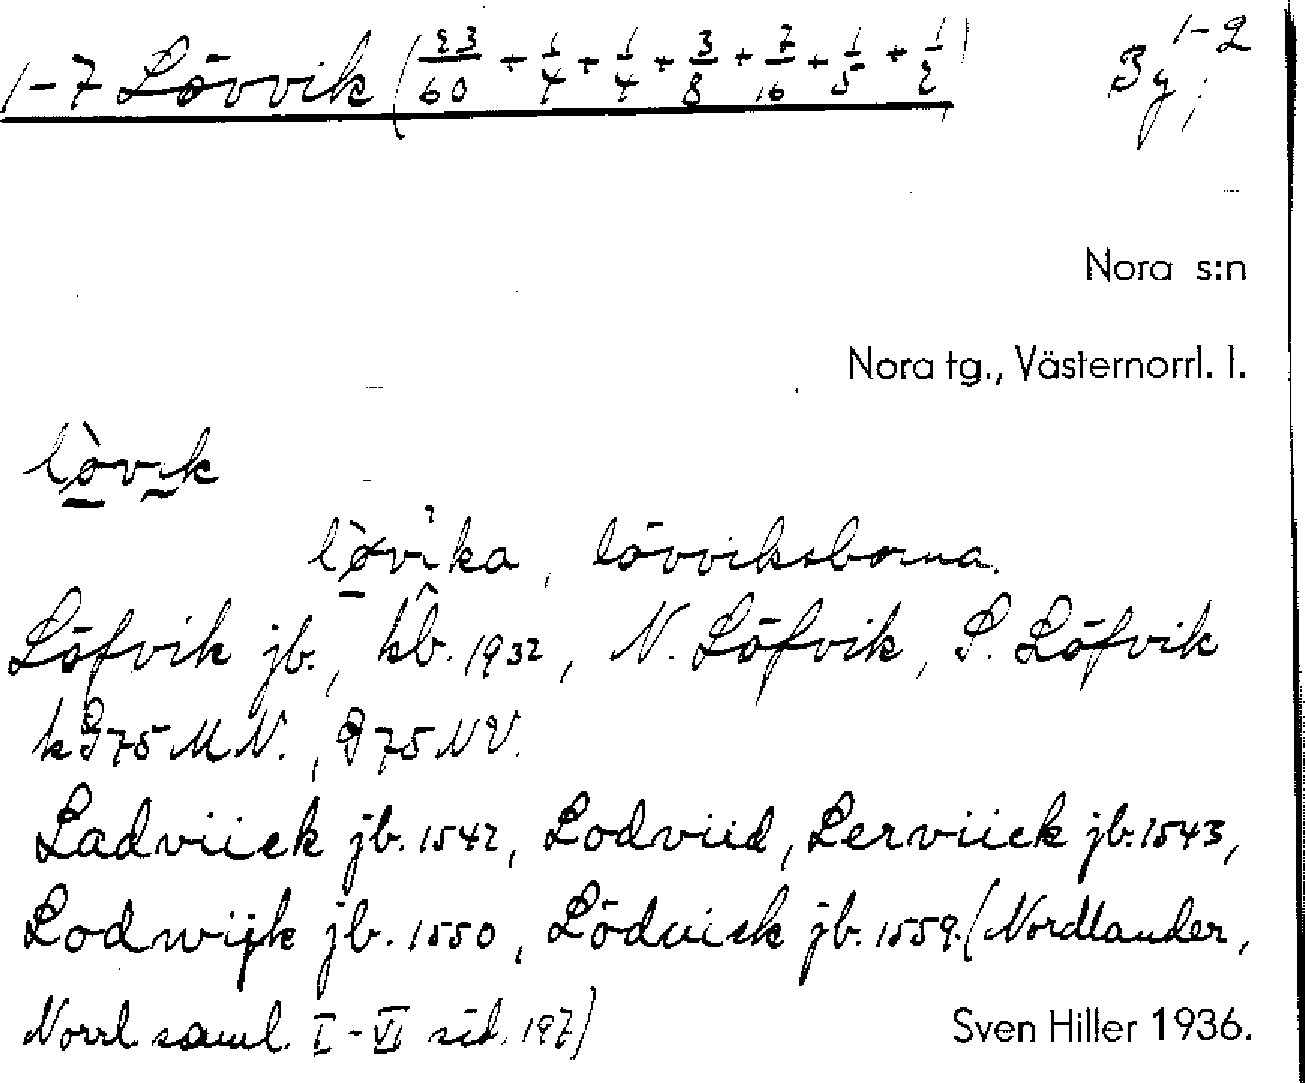 1-7 Lövvik (23/60 + 1/4 + 1/4 + 3/8 + 7/16 + 1/5 + 1/2)
3y; 1-2
Nora s:n
Nora tg., Västernorrl. l.
lø̀vik
lø̀vika, lövviksborna.
Löfvik jb., kb. 1932, N. Löfvik, S. Löfvik
k 975 M N., 975 NV.
Ladviick jb. 1542, Lodviid, Lerviick jb. 1543,
Lodwijk jb. 1550, Löduick jb. 1559. (Nordlander,
Norrl saml. I-VI sid. 197)
Sven Hiller 1936.